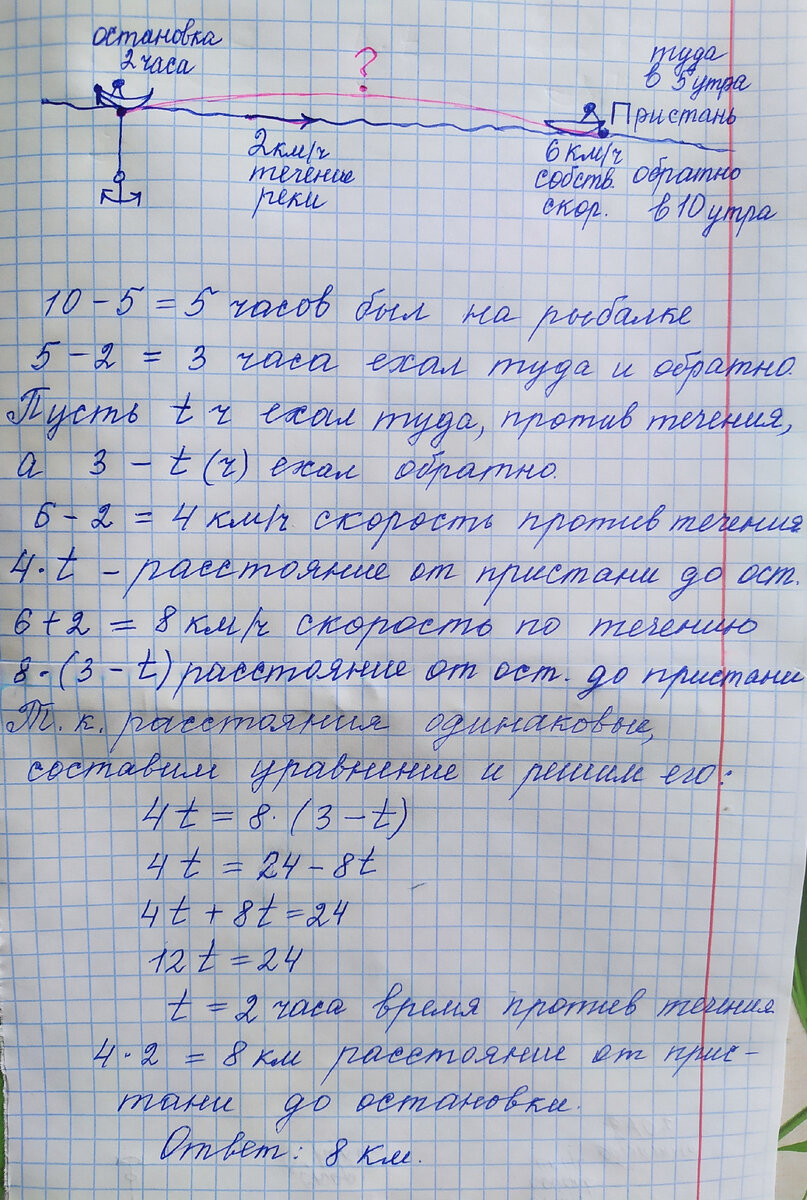 остановка
2 часа
?
туда
в 5 утра
Пристань
2 км/ч
течение
реки
6 км/ч
собств.
скор.
обратно
в 10 утра
10 - 5 = 5 часов был на рыбалке
5 - 2 = 3 часа ехал туда и обратно.
Пусть t ч ехал туда, против течения,
а 3 - t (ч) ехал обратно.
6 - 2 = 4 км/ч скорость против течения
4 · t - расстояние от пристани до ост.
6 + 2 = 8 км/ч скорость по течению
8 · (3 - t) расстояние от ост. до пристани
Т. к. расстояния одинаковые,
составим уравнение и решим его:
4t = 8 · (3 - t)
4t = 24 - 8t
4t + 8t = 24
12t = 24
t = 2 часа время против течения
4 · 2 = 8 км расстояние от прис-
тани до остановки.
Ответ: 8 км.